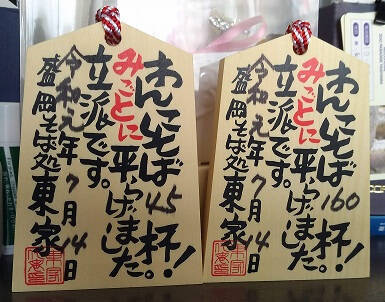 わんこそば45杯!
みごとに平らげました。
立派です。
令和元年7月14日
盛岡そば処東家
わんこそば160杯!
みごとに平らげました。
立派です。
令和元年7月14日
盛岡そば処東家